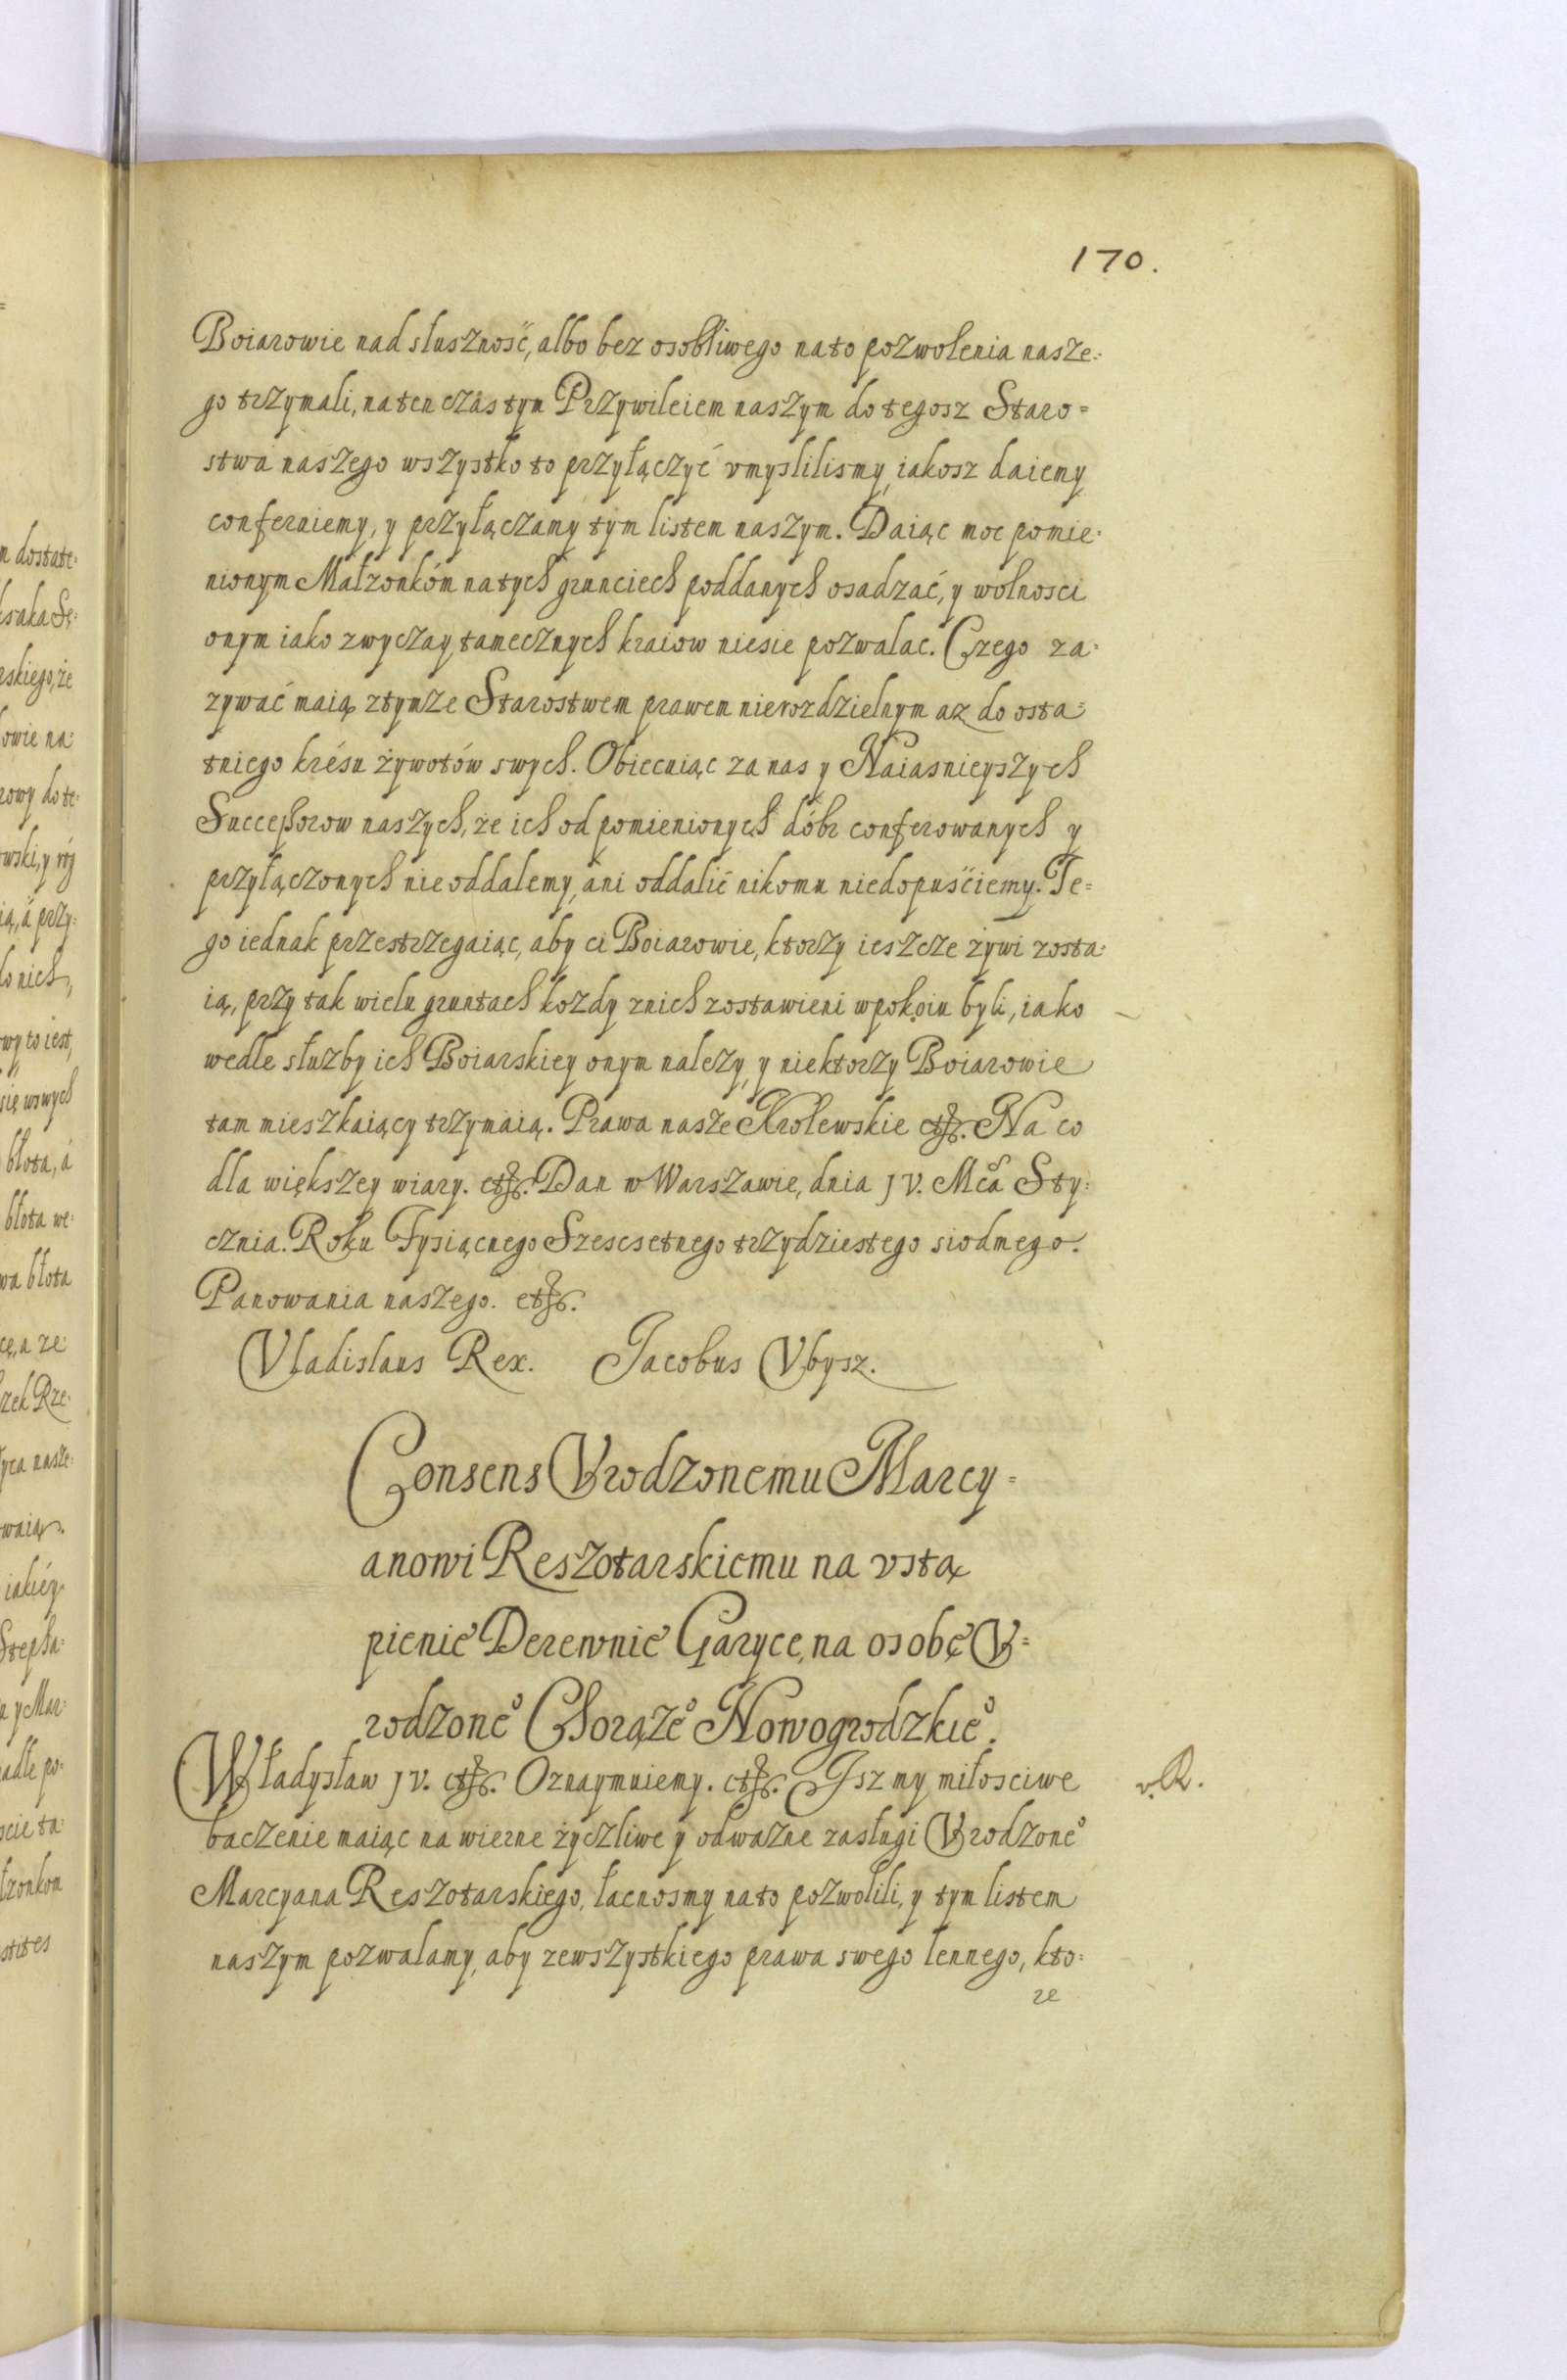 170.
Boiarowie nad słusznosć, albo bez osobliwego na to pozwolenia nasze=
go trzymali, na ten czas tym Przywileiem naszym do tegosz Staro=
stwa naszego wszystko to przyłączyć vmyslilismy, iakosz daiemy
conferuiemy, y przyłączamy tym listem naszym. Daiąc moc pomie=
nionym Małzonkóm na tych grunciech poddanych osadzać, y wolnosci
onym iako zwyczay tamecznych kraiow niesie pozwalac. Czego za=
zywać maią z tymze Starostwem prawem nierozdzielnym az do osta=
tniego krésu żywotów swych. Obiecuiąc za nas y Naiasnieyszych
Successorow naszych, że ich od pomienionych dóbr conferowanych y
przyłączonych nie oddalemy, ani oddalić nikomu niedopusciemy. Te=
go iednak przestrzegaiąc, aby ci Boiarowie, ktorzy ieszcze żywi zosta=
ią, przy tak wielu gruntach kozdy z nich zostawieni w pokoiu byli, iako
wedle słuzby ich Boiarskiey onym nalezy, y niektorzy Boiarowie
tam mieszkaiący trzymaią. Prawa nasze Krolewskie etc. Na co
dla większey wiary. etc. Dan w Warszawie, dnia JV. Mca Sty=
cznia. Roku Tysiącnego Szescsetnego trzydziestego siodmego.
Panowania naszego. etc.
Vladislaus Rex. Jacobus Vbysz.
Consens Vrodzonemu Marcy=
anowi Reszotarskiemu na vstą
pienie Derewnie Garyce, na osobę V=
rodzoneº Chorążeº Nowogrodzkieº.
Władysław JV. etc. Oznaymuiemy. etc. Jsz my miłosciwe
baczenie maiąc na wierne życzliwe y odważne zasługi Vrodzoneº
Marcyana Reszotarskiego, łacnosmy na to pozwolili, y tym listem
naszym pozwalamy, aby ze wszystkiego prawa swego lennego, kto=
re